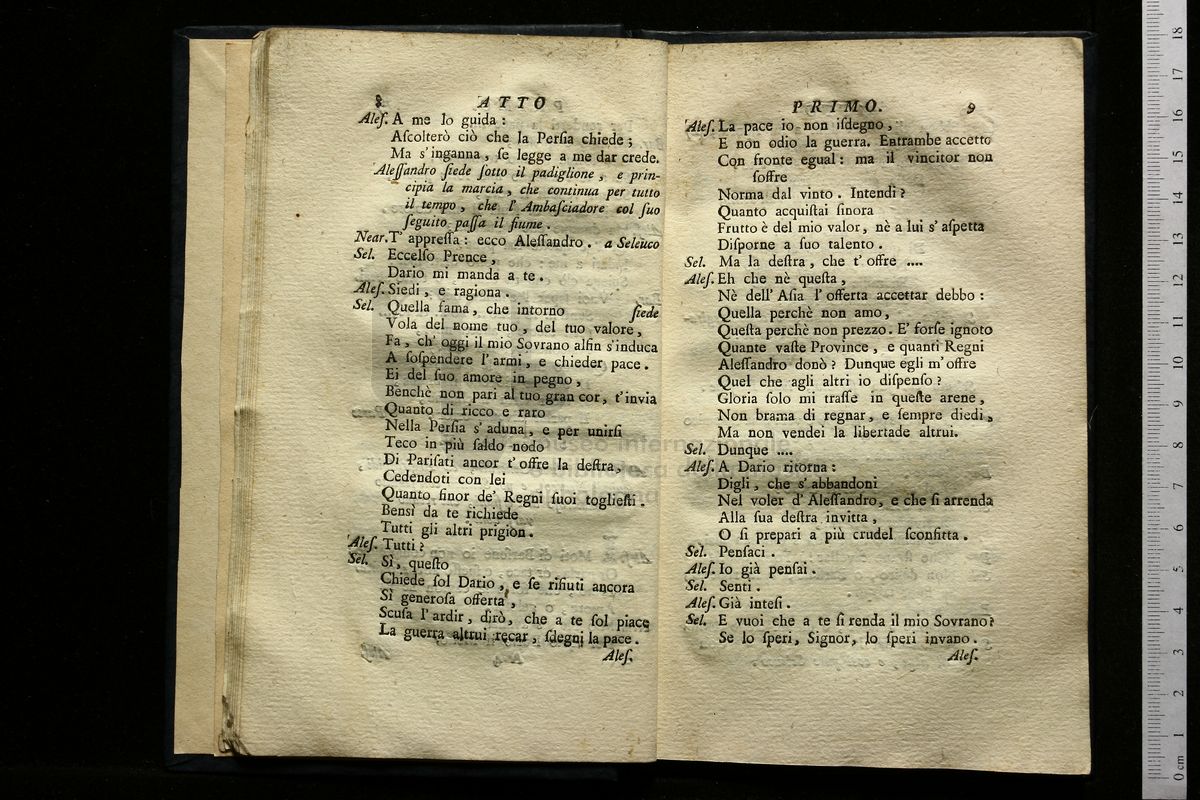 8 ATTO
Aleſ. A me lo guida:
Aſcolterò ciò che la Perſia chiede;
Ma s'inganna, ſe legge a me dar crede.
Aleſſandro ſiede ſotto il padiglione, e prin-
cipia la marcia, che continua per tutto
il tempo, che l' Ambaſciadore col ſuo
ſeguito paſſa il fiume.
Near. T' appreſſa: ecco Aleſſandro. a Seleuco
Sel. Eccelſo Prence,
Dario mi manda a te.
Aleſ. Siedi, e ragiona.
Sel. Quella fama, che intorno ſiede
Vola del nome tuo, del tuo valore,
Fa, ch' oggi il mio Sovrano alfin s'induca
A ſoſpendere l'armi, e chieder pace.
Ei del ſuo amore in pegno,
Benchè non pari al tuo gran cor, t'invia
Quanto di ricco e raro
Nella Perſia s' aduna, e per unirſi
Teco in più ſaldo nodo
Di Pariſati ancor t'offre la deſtra,
Cedendoti con lei
Quanto finor de' Regni ſuoi toglieſti.
Bensì da te richiede
Tutti gli altri prigion.
Aleſ. Tutti?
Sel. Sì, queſto
Chiede ſol Dario, e ſe rifiuti ancora
Sì generoſa offerta,
Scuſa l'ardir, dirò, che a te ſol piace
La guerra altrui recar, ſdegni la pace.
Aleſ.
PRIMO. 9
Aleſ. La pace io non iſdegno,
E non odio la guerra. Entrambe accetto
Con fronte egual: ma il vincitor non
ſoffre
Norma dal vinto. Intendi?
Quanto acquiſtai ſinora
Frutto è del mio valor, nè a lui s' aſpetta
Diſporne a ſuo talento.
Sel. Ma la deſtra, che t' offre ....
Aleſ. Eh che nè queſta,
Nè dell' Aſia l' offerta accettar debbo:
Quella perchè non amo,
Queſta perchè non prezzo. E' forſe ignoto
Quante vaſte Province, e quanti Regni
Aleſſandro donò? Dunque egli m'offre
Quel che agli altri io diſpenſo?
Gloria ſolo mi traſſe in queſte arene,
Non brama di regnar, e ſempre diedi,
Ma non vendei la libertade altrui.
Sel. Dunque ....
Aleſ. A Dario ritorna:
Digli, che s' abbandoni
Nel voler d' Aleſſandro, e che ſi arrenda
Alla ſua deſtra invitta,
O ſi prepari a più crudel ſconfitta.
Sel. Penſaci.
Aleſ. Io già penſai.
Sel. Senti.
Aleſ. Già inteſi.
Sel. E vuoi che a te ſi renda il mio Sovrano?
Se lo ſperi, Signor, lo ſperi invano.
Aleſ.
museo internazionale
0 cm 1 2 3 4 5 6 7 8 9 10 11 12 13 14 15 16 17 18